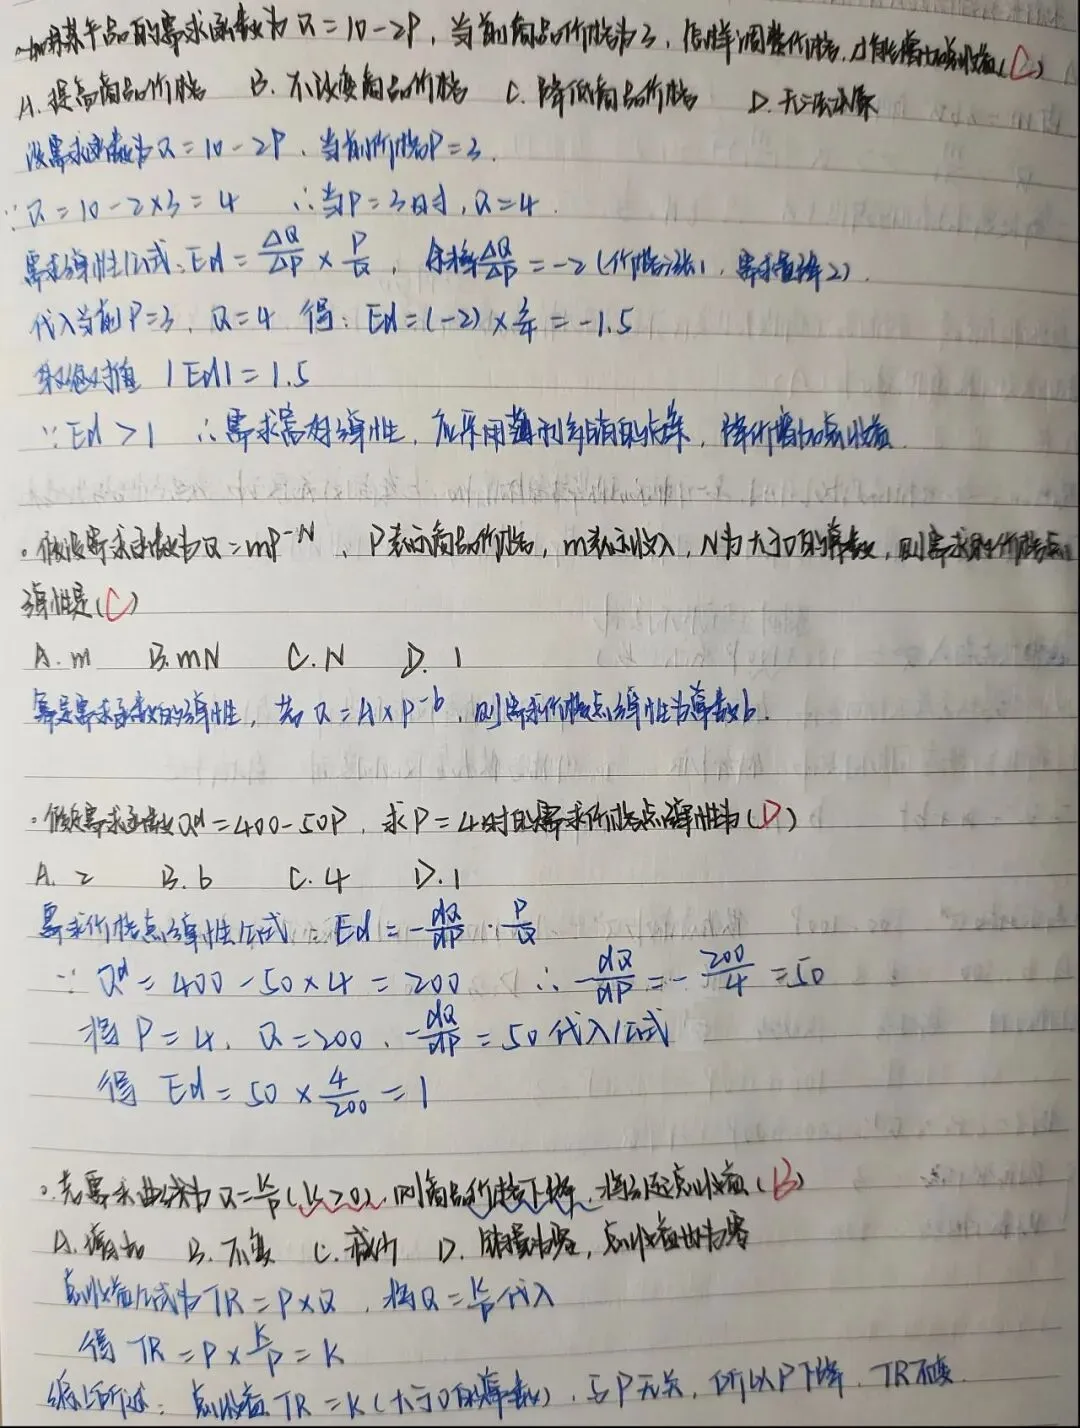 某产品的需求函数为Q=10-2P，当前商品价格为3，怎样调整价格，才能增加总收益(C)
A.提高商品价格 B.不改变商品价格 C.降低商品价格 D.无法决策
设需求函数为Q=10-2P、当前价格P=3.
∵Q=10-2×3=4 ∴当P=3时,Q=4.
需求弹性公式:Ed=ΔQ/ΔP×P/Q, 斜率ΔQ/ΔP=-2(价格涨1,需求量降2).
代入当前P=3,Q=4 得:Ed=(-2)×3/4=-1.5
取绝对值 |Ed|=1.5
∵Ed>1 ∴需求富有弹性,应采用薄利多销的决策,降价增加总收益.
。假设需求函数为Q=mP^-N,P表示商品价格,m表示收入,N为大于0的常数,则需求的价格点
弹性是(C)
A.m B.mN C.N D.1
幂是需求函数的弹性,若Q=A×P^-b,则需求价格点弹性为常数b.
。假定需求函数Q^d=400-50P,求P=4时的需求价格点弹性为(D)
A.2 B.6 C.4 D.1
需求价格点弹性公式:Ed=-dQ/dP·P/Q
∵Q^d=400-50×4=200 ∴-dQ/dP=-200/4=50
将P=4、Q=200、-dQ/dP=50代入公式
得 Ed=50×4/200=1
。若需求曲线为Q=K/P(K>0),则商品价格下降,将引起总收益(B)
A.增加 B.不变 C.减少 D.销量为零,总收益也为零
总收益公式为TR=P×Q,将Q=K/P代入
得 TR=P×K/P=K
综上所述:总收益TR=K(大于0的常数),与P无关,所以P下降,TR不变.